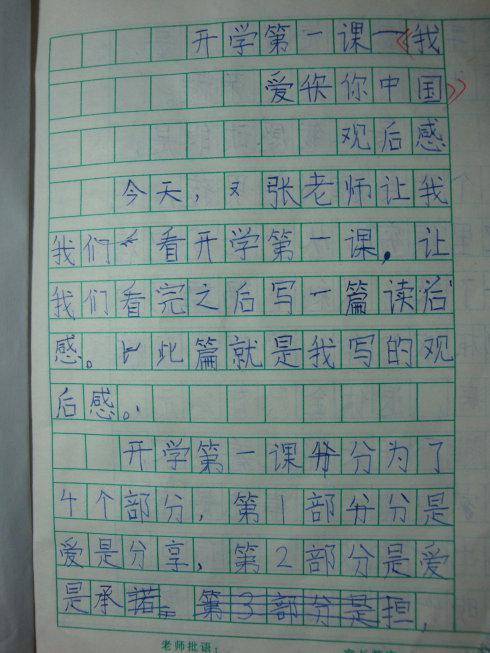 开学第一课一《我
爱你中国》
观后感
今天，张老师让我
我们看开学第一课，让
我们看完之后写一篇读后
感。此篇就是我写的观
后感。
开学第一课分为了
4个部分，第1部分是
爱是分享，第2部分是爱
是承诺。第3部分是担，
老师批语：